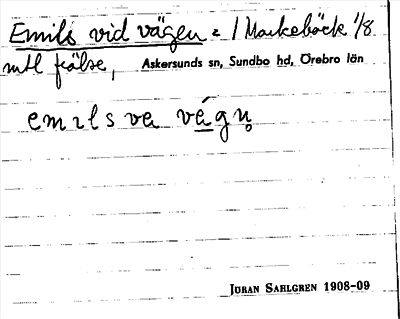 Emils vid vägen = 1 Markebäck 1/8
mtl frälse, Askersunds sn, Sundbo hd, Örebro län
emɪls va vé̱gn̥
JÖRAN SAHLGREN 1908-09